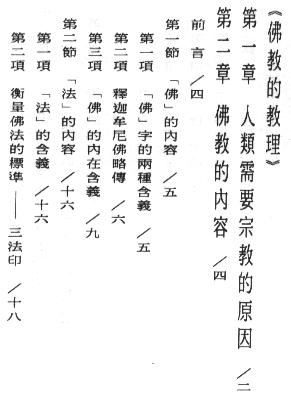 《佛教的教理》
第一章 人類需要宗教的原因 /二
第二章 佛教的內容 /四
前言 /四
第一節 「佛」的內容 /五
第一項 「佛」字的兩種含義 /五
第二項 釋迦牟尼佛略傳 /六
第三項 「佛」的內在含義 /九
第二節 「法」的內容 /十六
第一項 「法」的含義 /十六
第二項 衡量佛法的標準——三法印 /十八